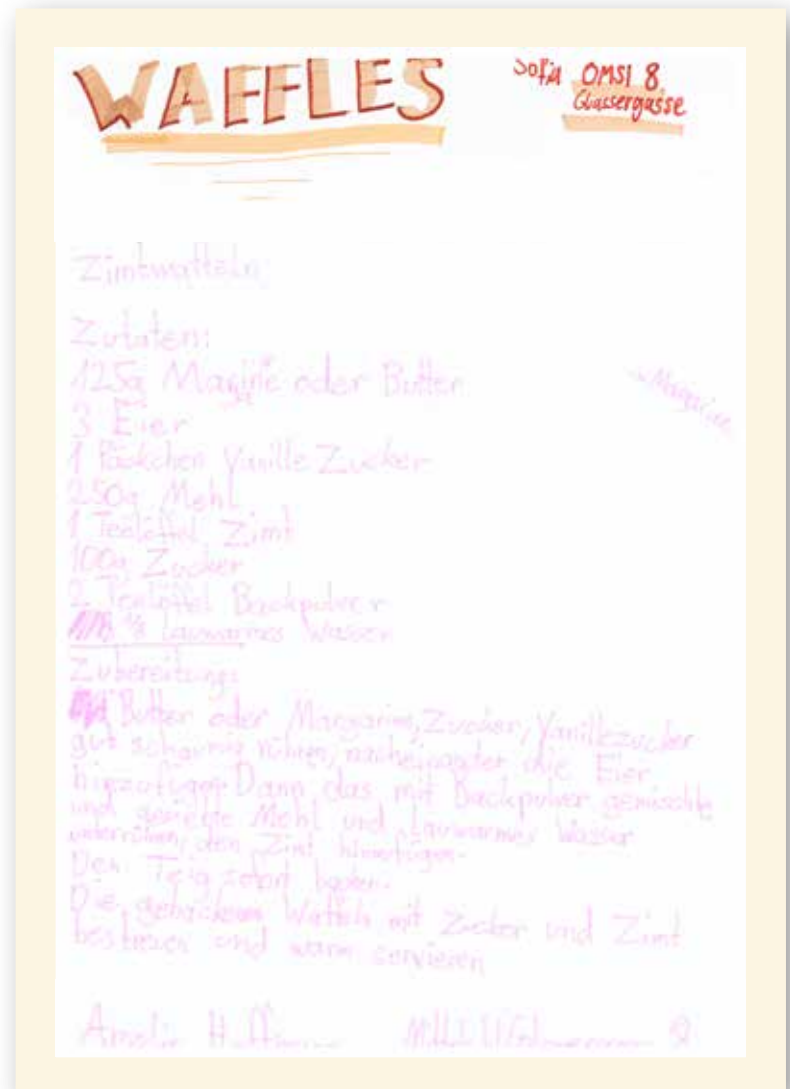 WAFFLES
Sofia OMSI 8
Glassergasse
Zimtwaffeln:
Zutaten:
125g Magarine oder Butter
Margarine
3 Eier
1 Päckchen Vanille Zucker
250g Mehl
1 Teelöffel Zimt
100g Zucker
2 Teelöffel Backpulver
1/8 lauwarmes Wasser
Zubereitung:
Butter oder Margarine, Zucker, Vanillezucker
gut schaumig rühren, nacheinander die Eier
hinzufügen. Dann das mit Backpulver gemischte
und gesiebte Mehl und lauwarmes Wasser
unterrühren, den Zimt hinzufügen.
Den Teig sofort backen.
Die gebackenen Waffeln mit Zucker und Zimt
bestreuen und warm servieren
Amelie